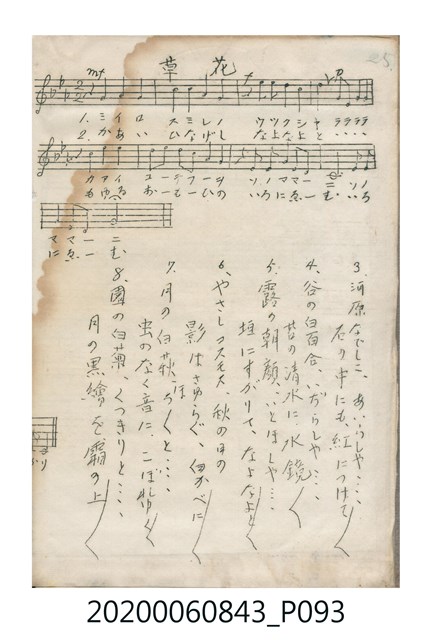 草花
25.
mf
f
P
1. ミイロ スミレノ ウツクシヤ ララララ
2. かあい ひなげし なよなよと
カアイ コーテフーヲ ソノママー ニ ソノ
もゆる おーもーひの いろにゑー む いろ
ママーー ニ
にゑーー む
3、河原なでしこ、あいらしや…、
石の中にも、紅につけて
4、谷の白百合、いぢらしや…、
苔の清水に、水鏡
5、露の朝顔、いとほしや…
垣にすがりて、なよなよと
6、やさしコスモス、秋の日の
影はさゆらぐ、白かべに
7、月の白萩、ほろくと…、
虫のなく音に、こぼれゆく
8、園の白菊、くつきりと…、
月の黒繪を霜の上
20200060843_P093